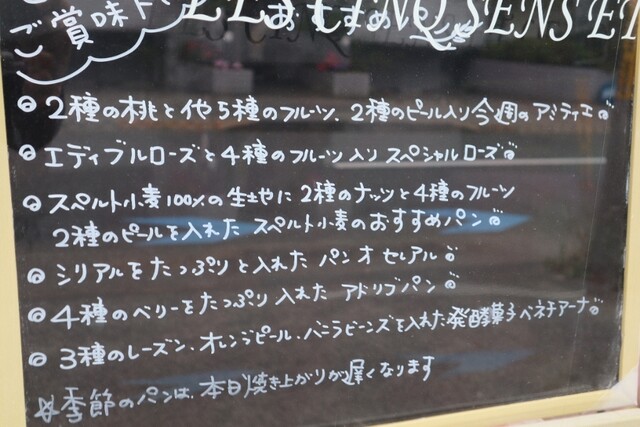 LES CINQ SENS ET
ご賞味下
おすすめ
◎2種の桃と他5種のフルーツ、2種のピール入り今週のアミティエ。
◎エディブルローズと4種のフルーツ入りスペシャルローズ。
◎スペルト小麦100%の生地に2種のナッツと4種のフルーツ
2種のピールを入れたスペルト小麦のおすすめパン。
◎シリアルをたっぷりと入れたパンオセレアル。
◎4種のベリーをたっぷり入れたアドリブパン。
◎3種のレーズン、オレンジピール、バニラビーンズを入れた発酵菓子ベネチアーナ。
☆季節のパンは、本日焼き上がりが遅くなります